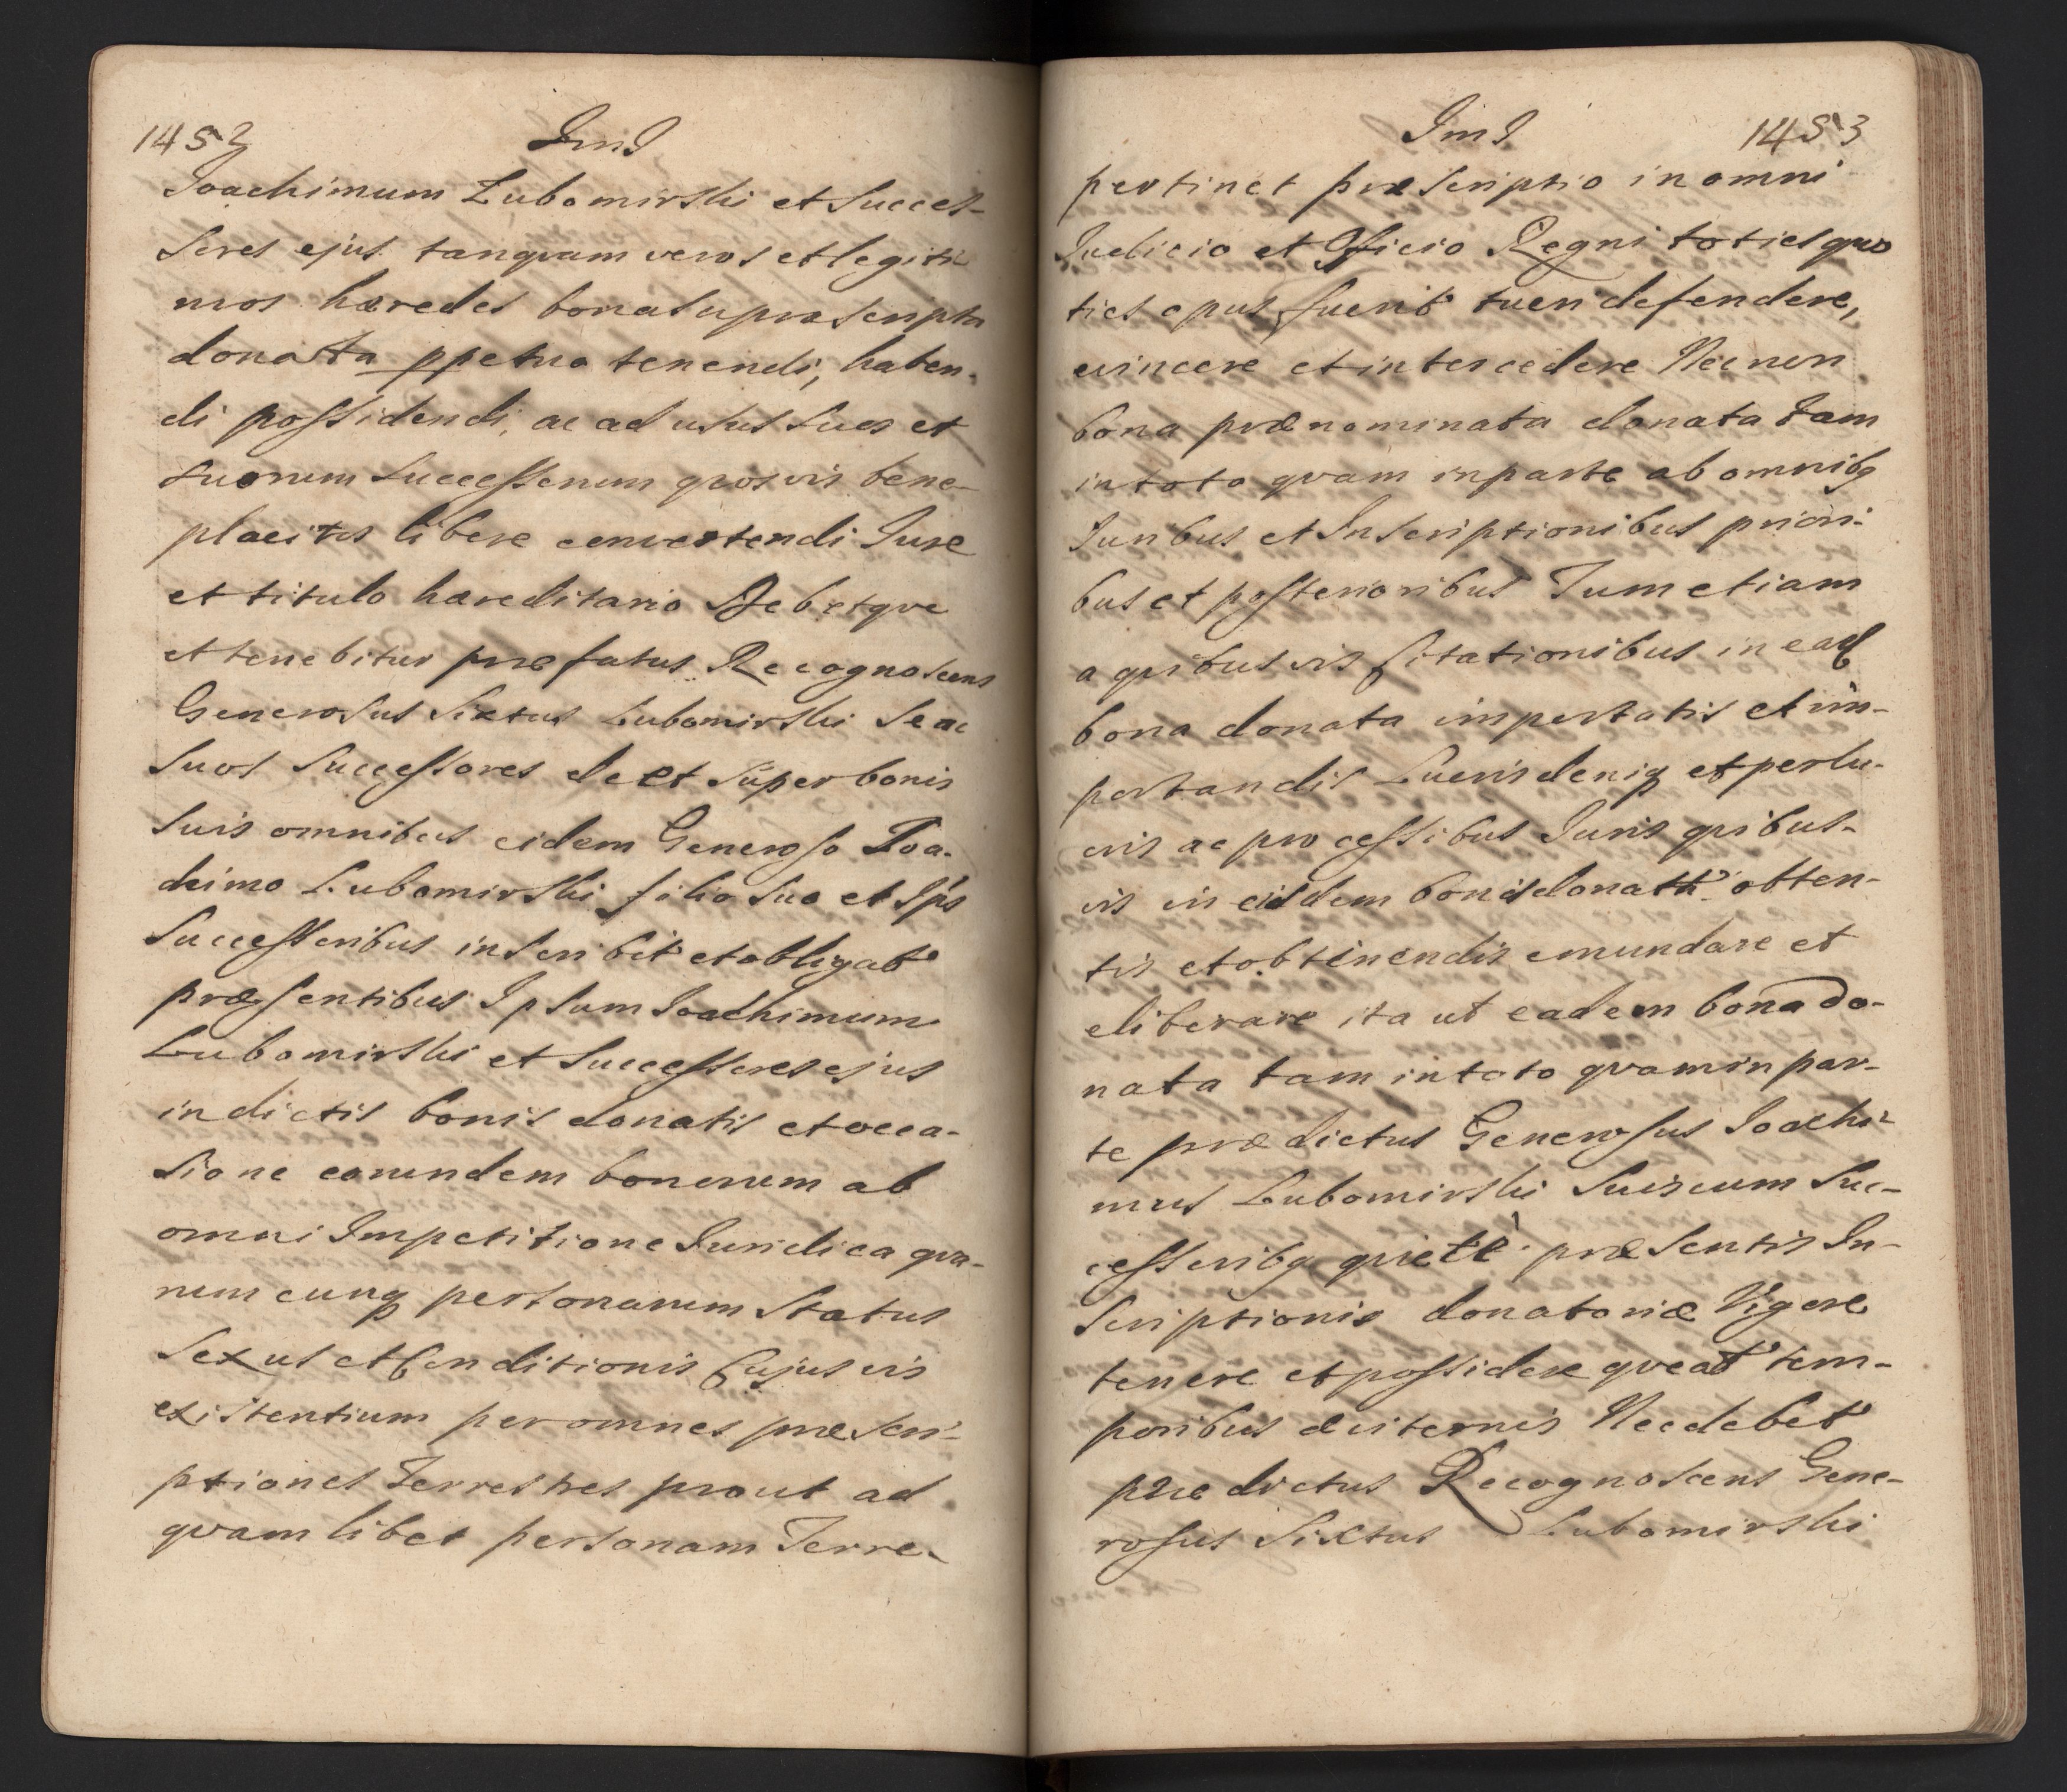 1452
ImJ
Joachimum Lubomirski et Succes-
sores ejus tanquam veros et legiti-
mos haeredes bona supra scripta
donata ppetuo tenendi, haben-
di possidendi, ac ad usus suos et
suorum Successorum quosvis bene-
placitos libere convertendi Jure
et titulo haereditario Debetque
et tenebitur praefatus Recognoscens
Generosus Sixtus Lubomirski Se ac
Suos Successores de et super bonis
suis omnibus eidem Generoso Joa-
chimo Lubomirski filio suo et Ips
Successoribus inscribit et obligat
praesentibus Ipsum Joachimum
Lubomirski et Successores ejus
in dictis bonis donatis et occa-
sione eorundem bonorum ab
omni Impetitione Juridica qua-
rumcunq personarum Status
Sexus et Conditionis Cujusvis
existentium per omnes praescri-
ptiones Terrestres prout ad
quamlibet personam Terre-
ImJ
1453
pertinet praescriptio in omni
Judicio et Officio Regni toties quo
ties opus fuerit tueri defendere,
evincere et intercedere Nec non
bona praenominata donata tam
in toto quam in parte ab omnibq
Juribus et Inscriptionibus priori-
bus et posterioribus Tum etiam
a quibusvis Citationibus in ead
bona donata importatis et im-
portandis Lucris deniq et perlu-
cris ac processibus Juris quibus-
vis in eisdem bonis donatis obten-
tis et obtinendis emundare et
eliberare ita ut eadem bona do-
nata tam in toto quam in par-
te praedictus Generosus Joachi-
mus Lubomirski Suis cum Suc-
cessoribq quiete praesentis In-
scriptionis donatoriae Vigore
tenere et possidere queat tem-
poribus aeviternis Nec debet
praedictus Recognoscens Gene-
rosus Sixtus Lubomirski